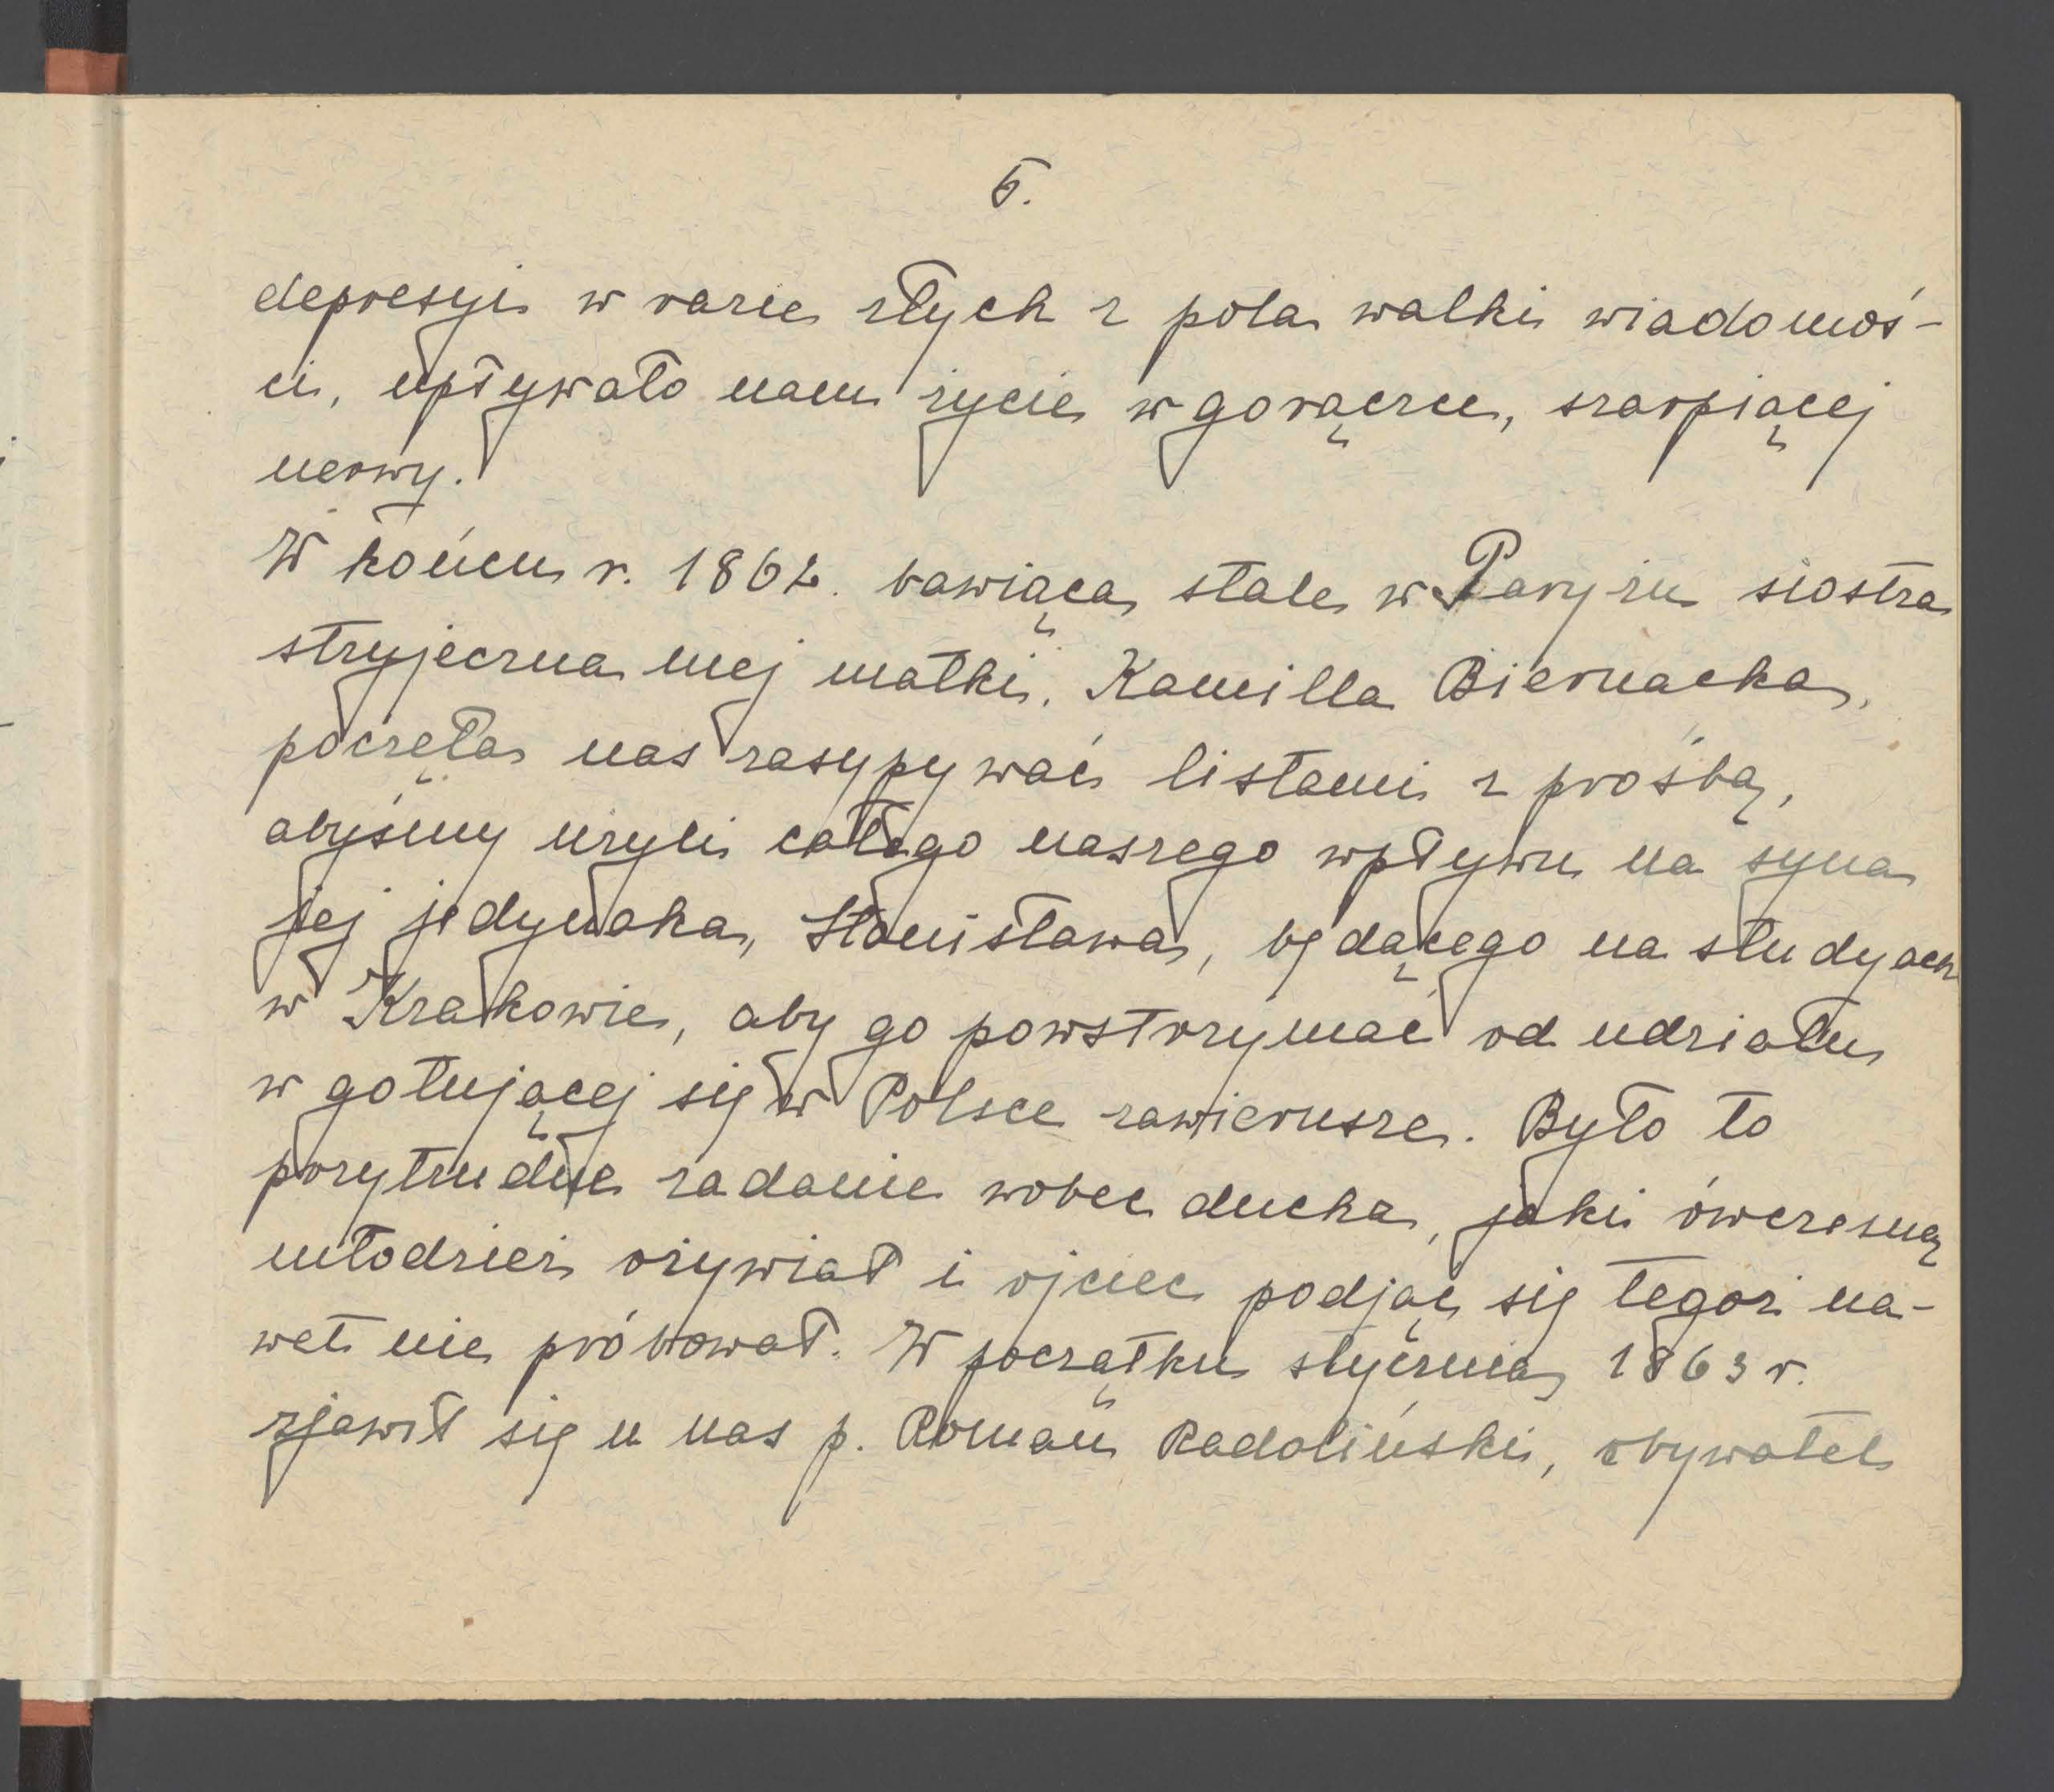 6.
depresyi w razie złych z pola walki wiadomoś-
ci, upływało nam życie w gorączce, szarpiącej
nerwy.
W końcu r. 1862. bawiąca stale w Paryżu siostra
stryjeczna mej matki, Kamilla Biernacka,
poczęła nas zasypywać listami z prośbą,
abyśmy użyli całego naszego wpływu na syna
jej jedynaka, Stanisława, będącego na studyach
w Krakowie, aby go powstrzymać od udziału
w gotującej się w Polsce zawierusze. Było to
przytrudne zadanie wobec ducha, jaki ówczesną
młodzież ożywiał i ojciec podjąć się tegoż na-
wet nie próbował. W początku stycznia 1863 r.
zjawił się u nas p. Roman Radoliński, obywatel